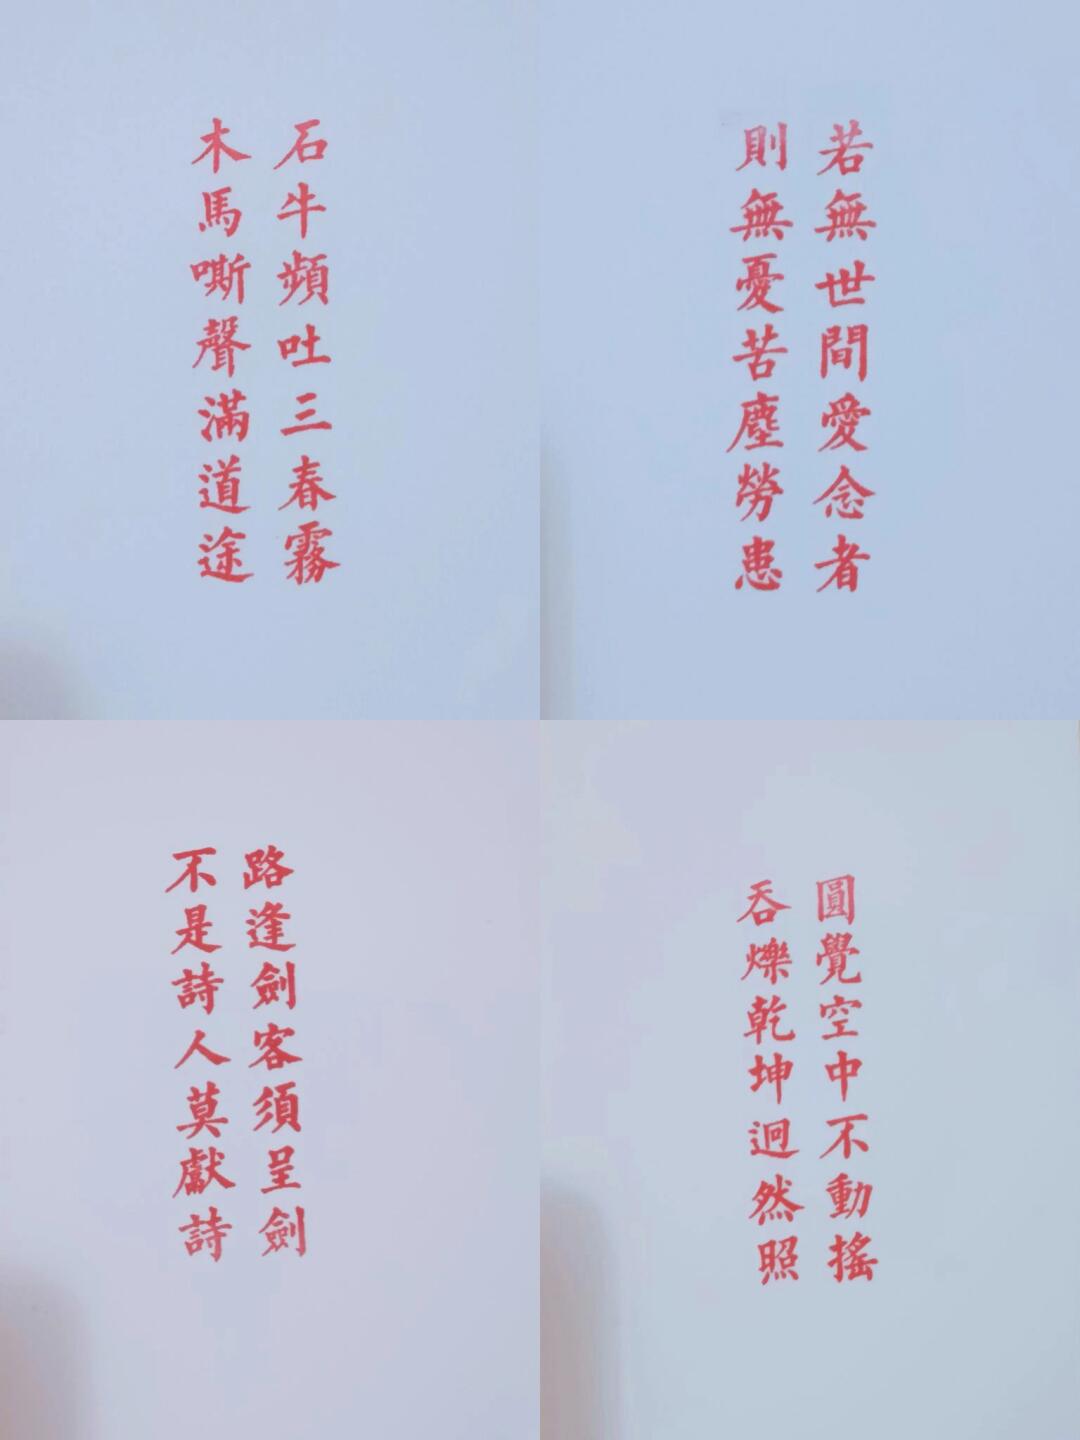 石牛頻吐三春霧
木馬嘶聲滿道途
若無世間愛念者
則無憂苦塵勞患
路逢劍客須呈劍
不是詩人莫獻詩
圓覺空中不動搖
吞爍乾坤迥然照